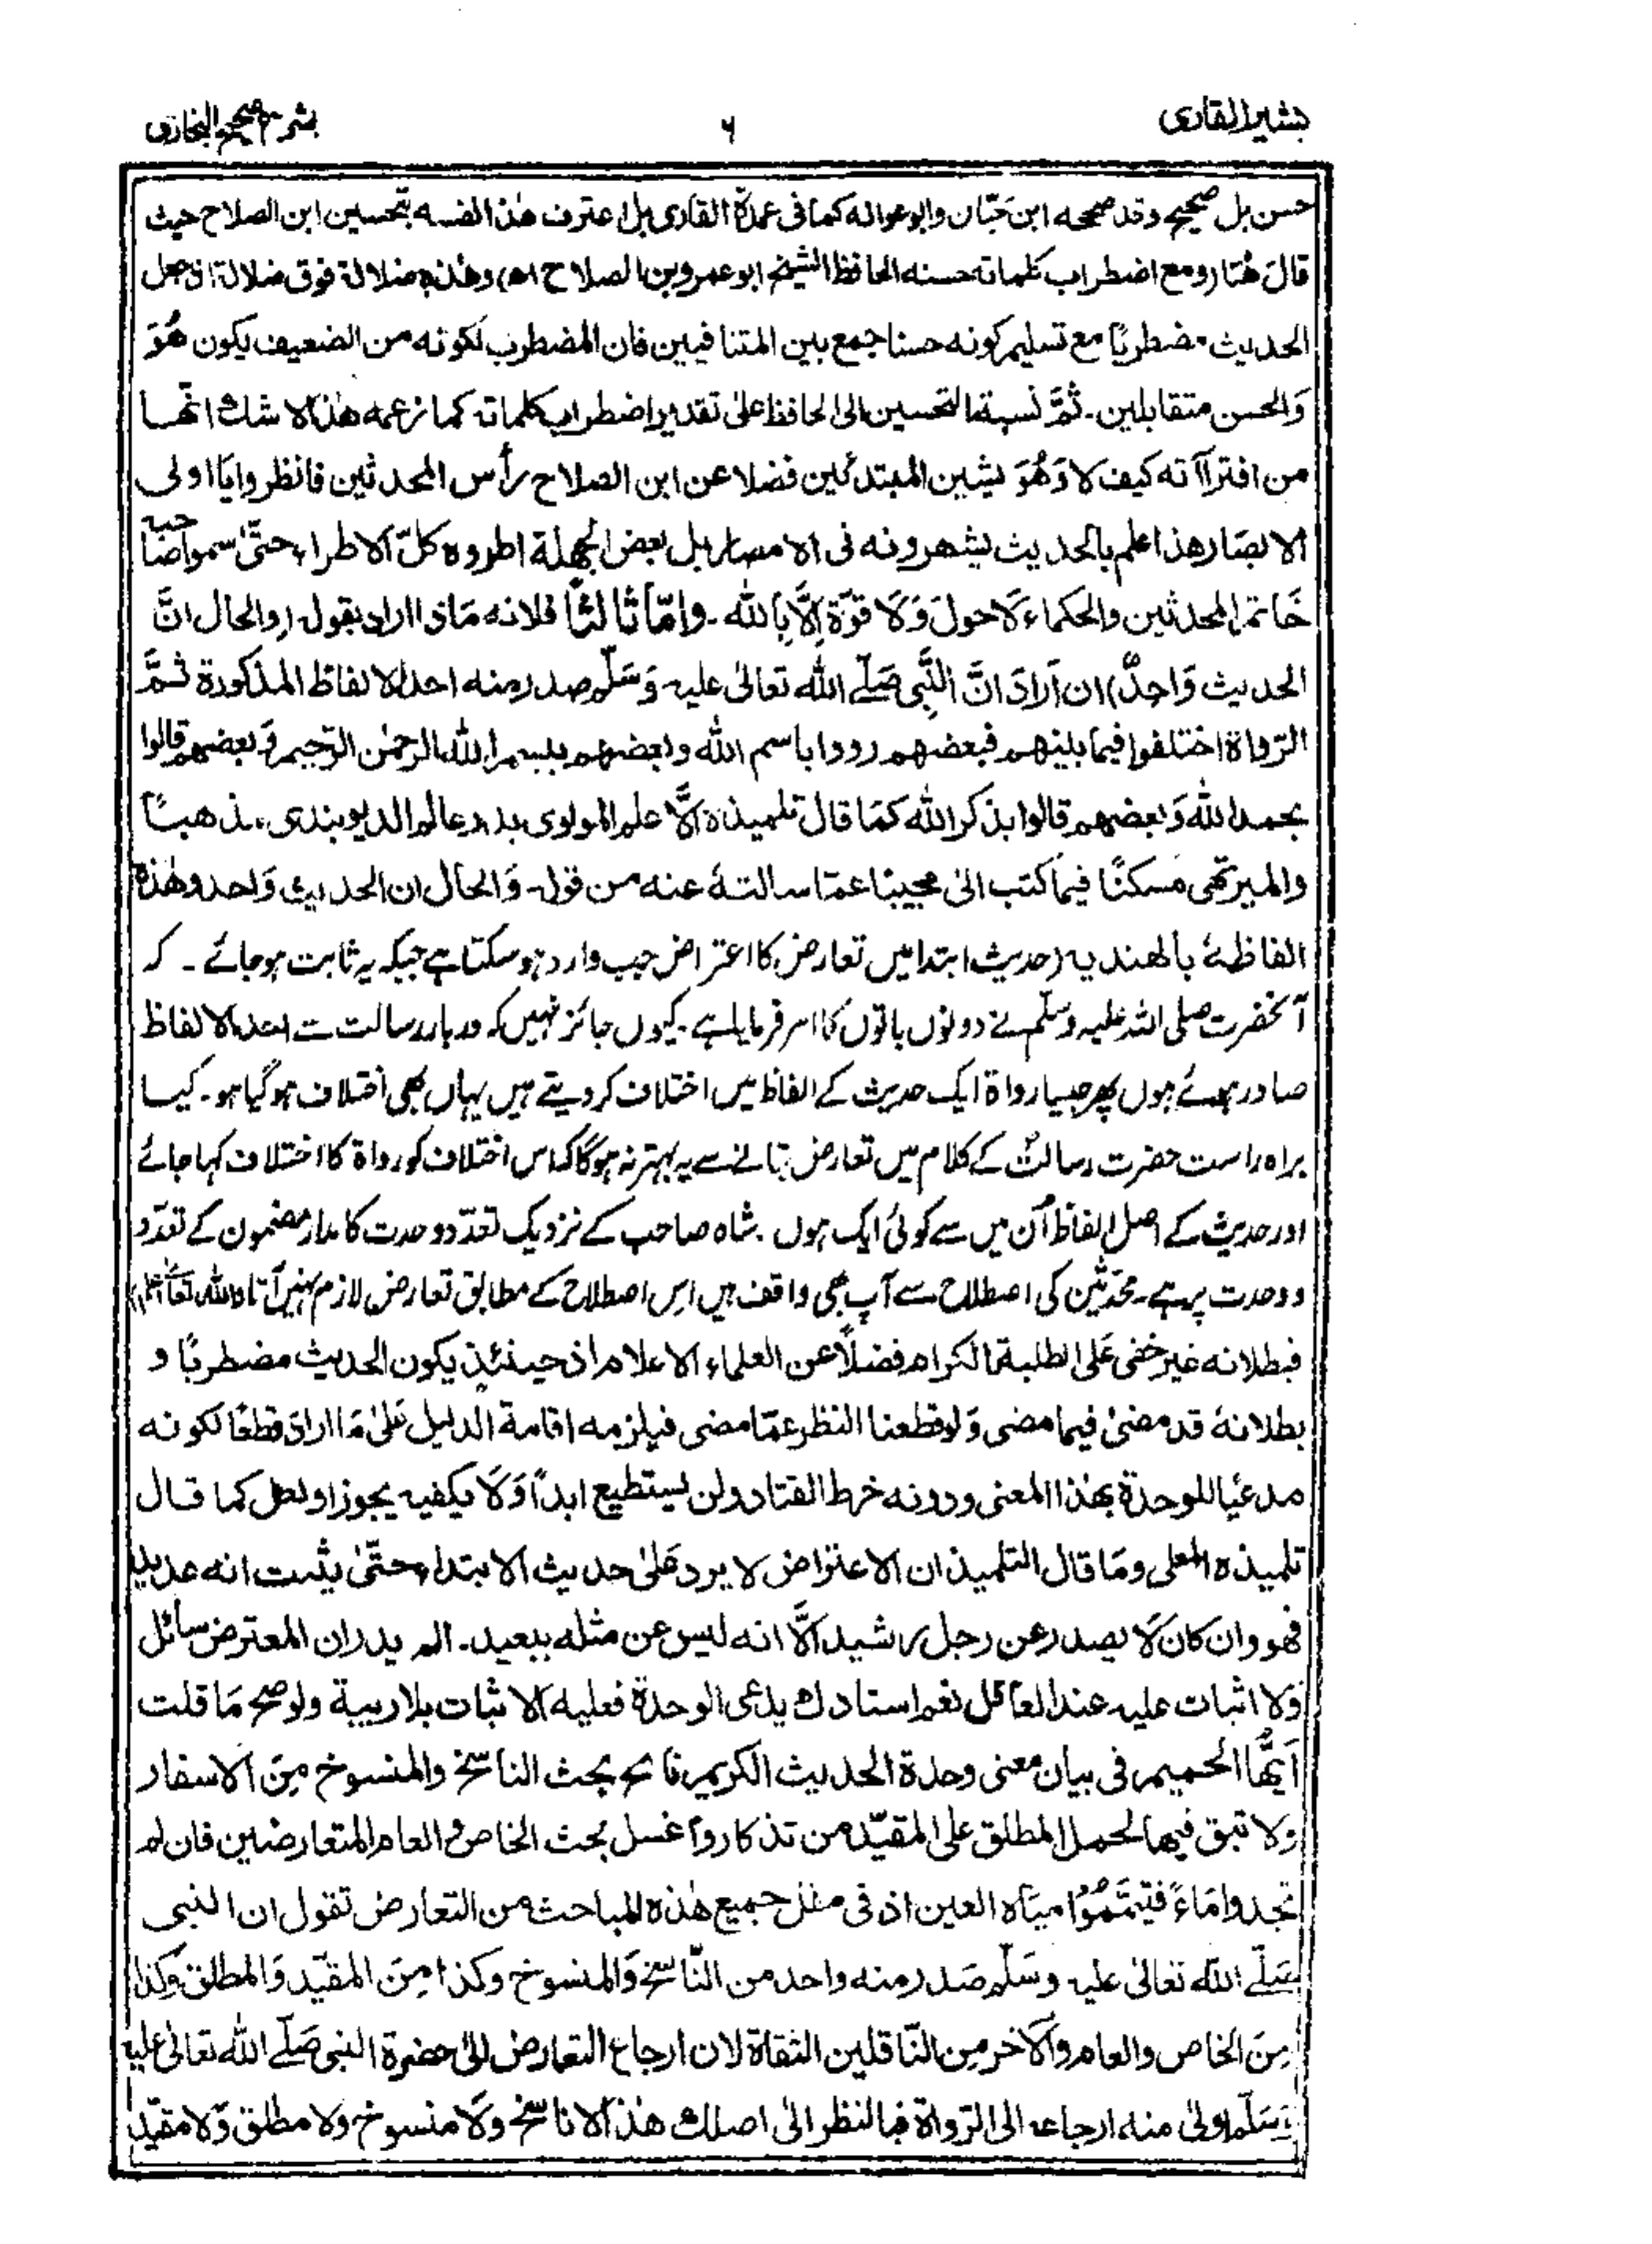 بشیر القاری
٦
بشرح صحیح البخاری
حسن بل صحیح وقد صححه ابن حبّان وابو عوانه کما فی عمدة القاری بل اعترف هذا نفسه بتحسین ابن الصلاح حیث
قال هٰنا رومع اضطراب کلماته حسنه الحافظ الشیخ ابو عمرو بن الصلاح اه) وهٰذه ضلالة فوق ضلالة اذ جعل
الحدیث مضطربًا مع تسلیم کونه حسنا جمع بین المتنافیین فان المضطرب لکونه من الضعیف یکون هُوَ
وَالحسن متقابلین۔ ثُمَّ نسبة التحسین الی الحافظ علی تقدیر اضطراب کلماته کما زعمه هٰذا لا شك انّها
من افتراآته کیف لا وَهُوَ یشین المبتدئین فضلا عن ابن الصلاح رأس المحدثین فانظروا یا اولی
الابصار هذا علم بالحدیث یشهرونه فی الامصار بل بعض الجهلة اطروه کلّ الاطراء حتّٰی سموا صاحبه
خَاتم المحدثین والحکماء لَا حولَ وَلَا قوّة اِلَّا بِالله۔ وامّا ثالثاً فلانه مَاذا اراد بقوله (والحال انَّ
الحدیث وَاحِدٌ) ان اَرادَ انَّ النَّبِی صَلَّے الله تعالیٰ علیه وَسَلَّم صدر منه احد الالفاظ المذکورة ثمَّ
الرّواة اختلفوا فیما بینهم فبعضهم رووا باسم الله وبعضهم ببسم الله الرحمٰن الرّحیم وَبعضهم قالوا
بحمد الله وَبعضهم قالوا بذکر الله کمَا قال تلمیذه الَا علم المولوی بدر عالم الدیوبندی مذهبًا
والمیرتهی مَسکنًا فیما کتب الیٰ مجیبًا عمّا سالتهٗ عنه من قولہ۔ وَالحال ان الحدیث وَاحد وهٰذه
الفاظهٗ بالهندیه (حدیث ابتدا میں تعارض کا اعتراض جب وارد ہو سکتا ہے جبکہ یہ ثابت ہو جائے۔ کہ
آنحضرت صلی اللہ علیہ وسلّم نے دونوں باتوں کا امر فرمایا ہے۔ کیوں جائز نہیں کہ دربار رسالت سے احد الالفاظ
صادر ہوئے ہوں پھر جیسا رواۃ ایک حدیث کے الفاظ میں اختلاف کر دیتے ہیں یہاں بھی اختلاف ہو گیا ہو۔ کیا
براہ راست حضرت رسالتؐ کے کلام میں تعارض بتانے سے یہ بہتر نہ ہوگا کہ اس اختلاف کو رواۃ کا اختلاف کہا جائے
اور حدیث کے اصل الفاظ اُن میں سے کوئی ایک ہوں۔ شاہ صاحب کے نزدیک تعدّد وحدت کا مدار مضمون کے تعدّد
و وحدت پر ہے۔ محدّثین کی اصطلاح سے آپ بھی واقف ہیں اس اصطلاح کے مطابق تعارض لازم نہیں آتا واللہ تعالٰی اعلم)
فبطلانه غیر خفی عَلی الطلبة الکرام فضلاً عن العلماء الاعلام اذ حینئذٍ یکون الحدیث مضطربًا و
بطلانهٗ قد مضیٰ فیما مضی وَلو قطعنا النظر عمّا مضی فیلزمه اقامة الدلیل عَلیٰ مَا ارادَ قطعًا لکونه
مدعیًا للوحدة بهٰذا المعنی ودونه خرط القتاد ولن یستطیع ابداً وَلَا یکفیه یجوز او لعل کما قال
تلمیذه المعلی ومَا قال التلمیذ ان الاعتراض لا یرد عَلیٰ حدیث الابتداء حتّٰی یثبت انه عدید
فهو وان کان لَا یصدر عن رجل رشید الَّا انه لیس عن مثله ببعید۔ الم یدر ان المعترض سائل
وَلا اثبات علیه عند العاقل نعم استاذك یدعی الوحدة فعلیه الاثبات بلا ریبة ولو صح مَا قلت
اَیُّها الحمیم فی بیان معنی وحدة الحدیث الکریم فامح بحث الناسخ والمنسوخ مِنَ الاسفار
ولا تبق فیها لحمل المطلق علی المقیّد من تذکار واغسل بحث الخاص والعام المتعارضین فان لم
تجدوا مَاءً فتیَمَّمُوا میَاه العین اذ فی مثل جمیع هٰذه المباحث من التعارض تقول ان النبی
صَلَّے الله تعالیٰ علیه وسَلَّم صَدر منه واحد من النّاسخ وَالمنسوخ وکذا مِنَ المقیّد وَالمطلق وَکذا
مِنَ الخاص والعام وَالآخر مِن النّاقلین الثقاة لان ارجاع التعارض الیٰ حضرة النبی صَلّے الله تعالیٰ علیه
وَسَلَّم اولیٰ منه ارجاعه الی الرّواة فبالنظر الیٰ اصلك هٰذا لا ناسخ وَلَا منسوخ ولا مطلق وَلا مقیّد